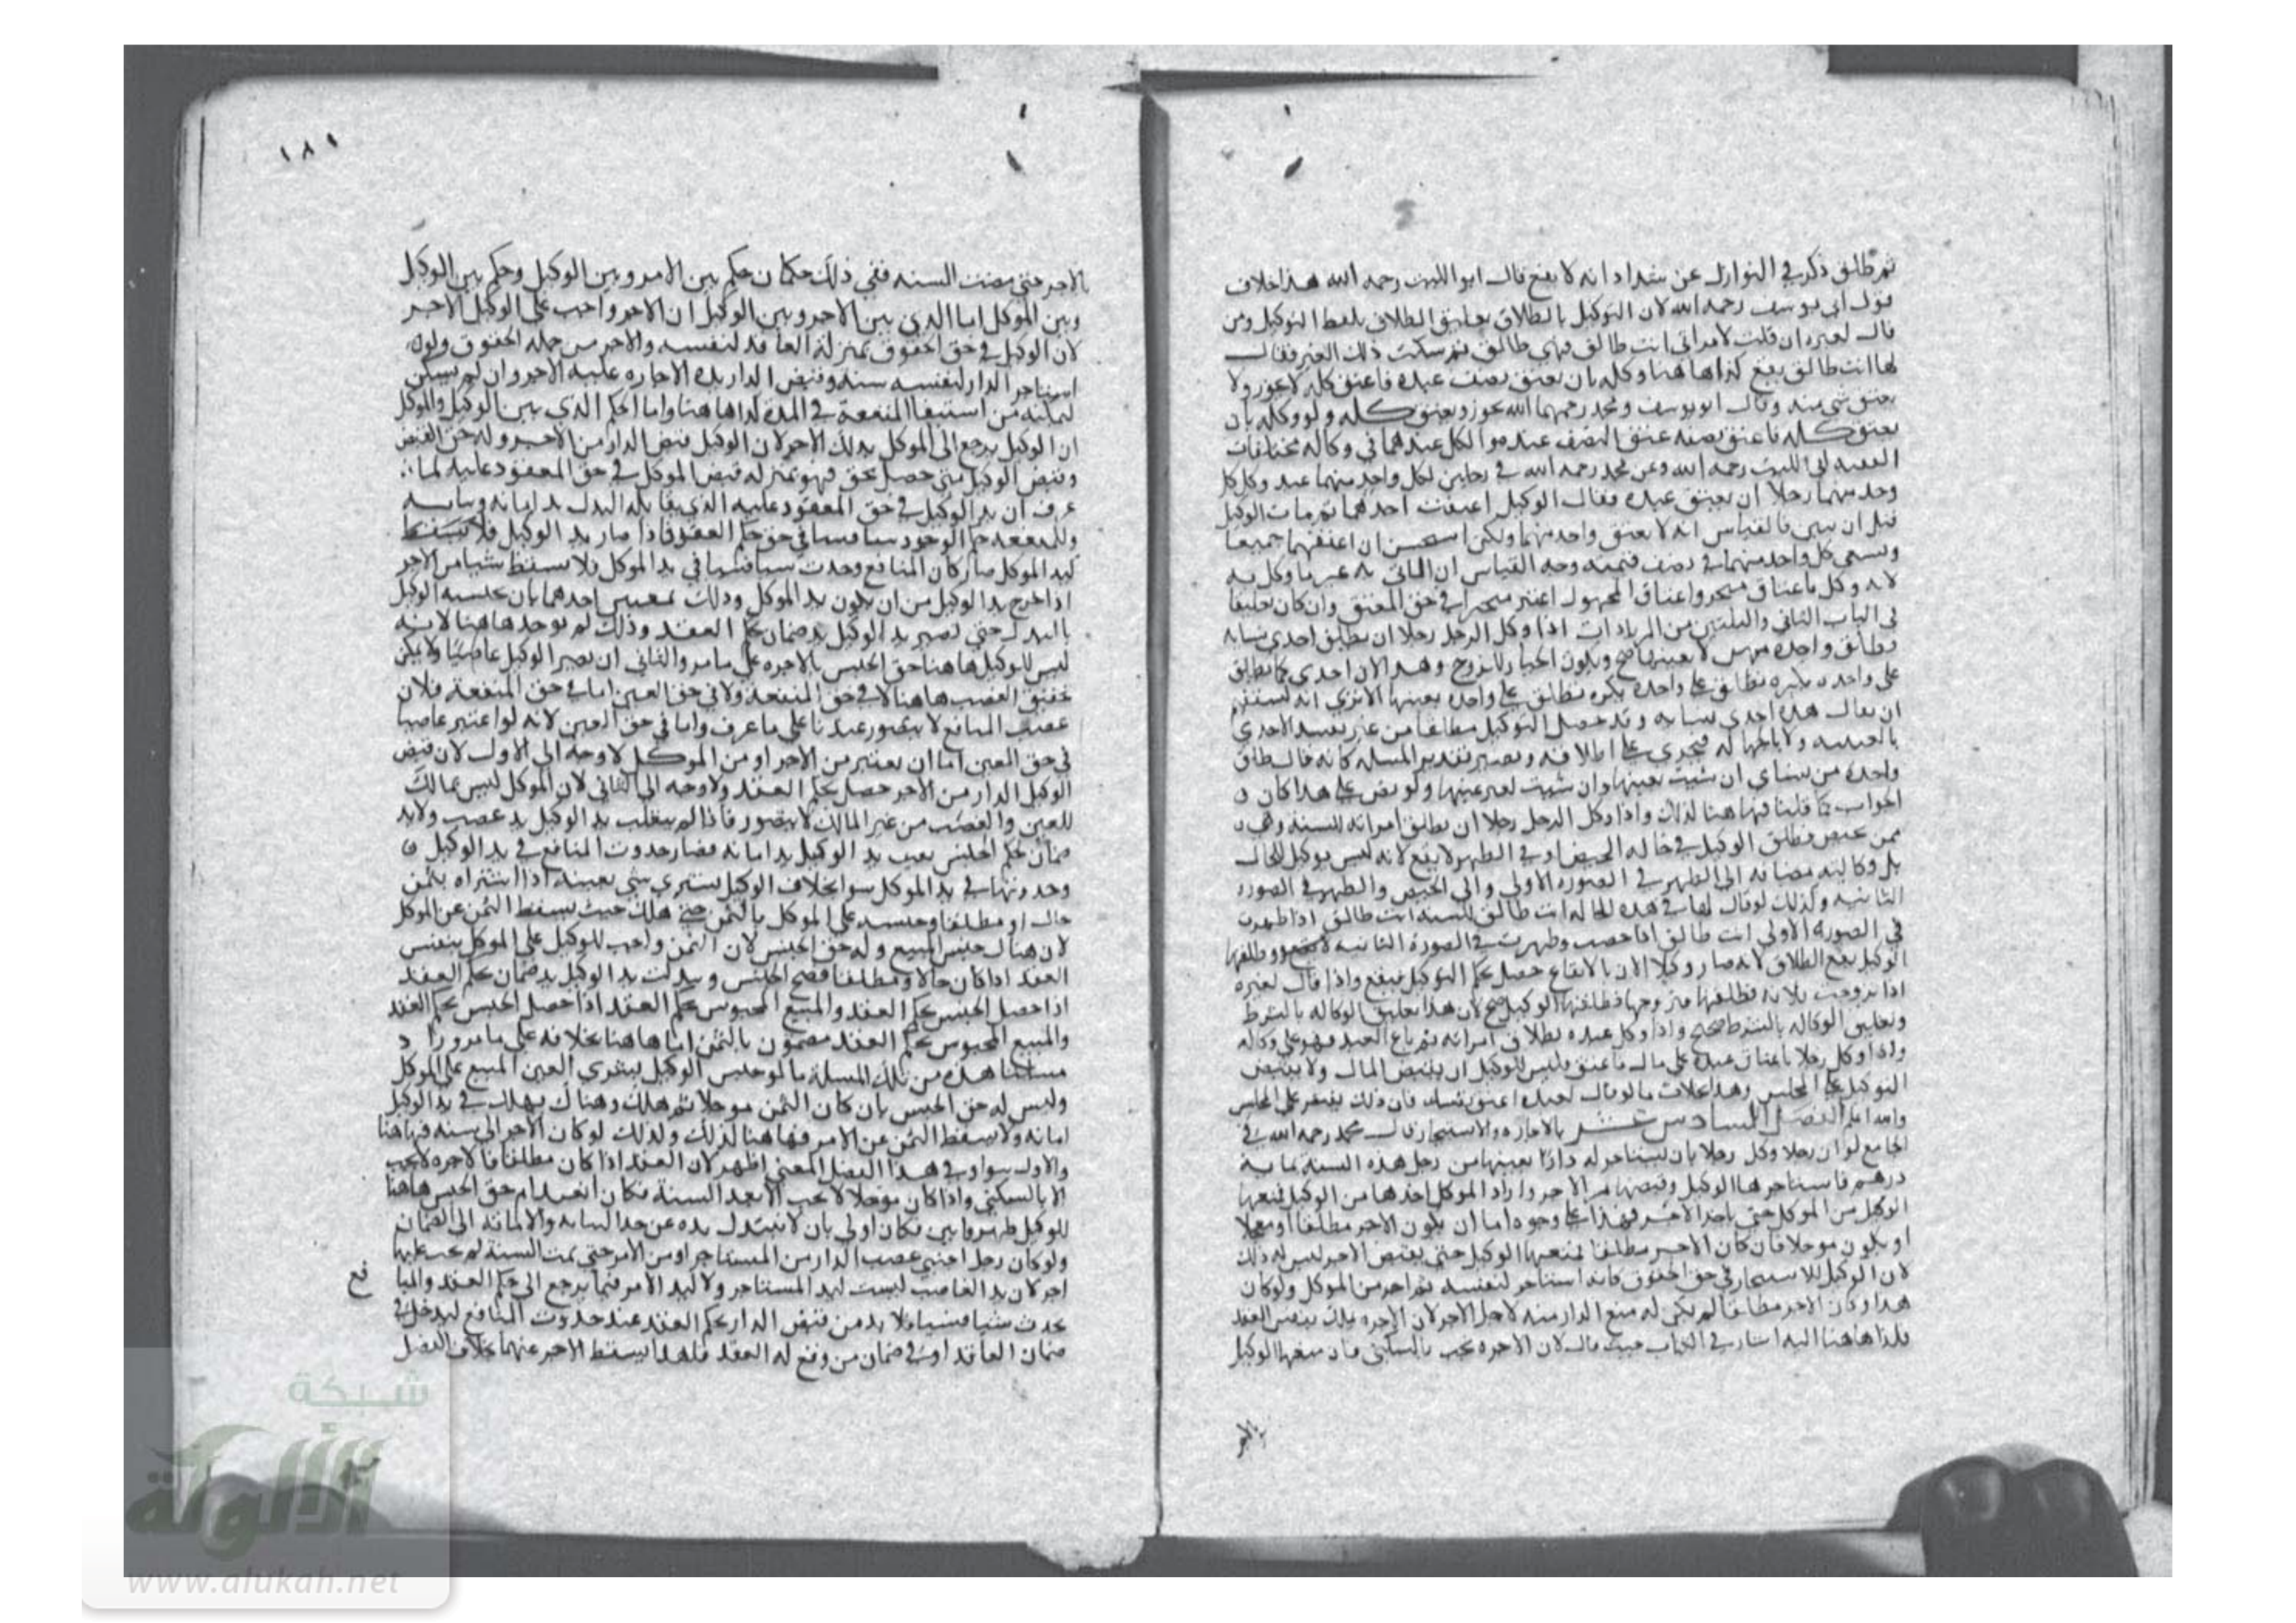 ثم طالق ذكر في النوازل عن شداد انه لا يقع قال ابو الليث رحمه الله هذا خلاف
قول ابي يوسف رحمه الله لان التوكيل بالطلاق تعليق الطلاق بلفظ التوكيل ومن
قال لغيره ان قلت لامراتي انت طالق فهي طالق ثم سكت ذلك الغير فقال
لها انت طالق يقع كذا هاهنا وكله بان يعتق نصف عبده فاعتق كله لا يجوز ولا
يعتق شي منه وقال ابو يوسف ومحمد رحمهما الله يجوز ويعتق كله ولو وكله بان
يعتق كله فاعتق نصفه عتق النصف عنده والكل عندهما في وكالة مختلفات
الفقيه ابي الليث رحمه الله وعن محمد رحمه الله في رجلين لكل واحد منهما عبد وكل كل
وحد منهما رجلا ان يعتق عبده فقال الوكيل اعتقت احدهما ثم مات الوكيل
قبل ان يبين فالقياس انه لا يعتق واحد منهما ولكن استحسن ان اعتقهما جميعا
ويسعى كل واحد منهما في نصف قيمته وجه القياس ان الماتي به غير ما وكل به
لانه وكل باعتاق منجز واعتاق المجهول اعتبر منجزا في حق المعتق وان كان تعليقا
في الباب الثاني والثلثين من الزيادات اذا وكل الرجل رجلا ان يطلق احدى نسائه
وطلق واحدة منهن لا بعينها صح ويكون الخيار للزوج وهذا لان احدى كما يطلق
على واحده نكره تطلق على واحدة بعينها الا تري انه يستقيم
ان يقال هذه احدي نسايه وقد حصل التوكيل مطلقا من غير تقييد الاحدى
فيجري على اطلاقه ويصير تقدير المسلة كانه قال طلق
واحدة من نساي ان شيت بعينها وان شيت لغير عينها ولو نص على هذا كان
الجواب كما قلنا فهاهنا كذلك واذا وكل الرجل رجلا ان يطلق امراته للسنة وهي
ممن تحيض فطلق الوكيل في حالة الحيض او في الطهر لا يقع لانه ليس بوكيل للحال
بل وكالته مضافه الى الطهر في الصوره الاولى والى الحيض والطهر في الصورة
الثانيه وكذلك لو قال لها في هذه الحالة انت طالق للسنة انت طالق اذا طهرت
في الصورة الاولى انت طالق اذا حضت وطهرت في الصورة الثانيه
الوكيل يقع الطلاق لانه صار وكيلا الان بالايقاع حصل بحكم التوكيل فيقع واذا قال لغيره
اذا تزوجت فلانه فطلقها فتزوجها فطلقها الوكيل صح لان هذا تعليق الوكاله بالشرط
وتعليق الوكاله بالشرط صحيح واذا وكل عبده بطلاق امراته ثم باع العبد فهو على وكاله
واذا وكل رجلا باعتاق عبده على مال فاعتق فليس للوكيل ان يقبض المال ولا يقتصر
التوكيل على المجلس وهذا بخلاف ما لو قال لعبده اعتق نفسك فان ذلك يقتصر على المجلس
والله اعلم الفصل السادس عشر بالاجارة والاستيجار قال محمد رحمه الله في
الجامع لو ان رجلا وكل رجلا بان يستاجر له دارا بعينها من رجل هذه السنة بماية
درهم فاستاجرها الوكيل وقبضها من الاجر واراد الموكل اخذها من الوكيل فمنعها
الوكيل من الموكل حتى ياخذ الاجر فهذا على وجوه اما ان يكون الاجر مطلقا او معجلا
او يكون موجلا فان كان الاجر مطلقا فمنعها الوكيل حتى يقبض الاجر ليس له ذلك
لان الوكيل بالاستيجار في حق الحقوق كانه استاجر لنفسه ثم اجر من الموكل ولو كان
هذا وكان الاجر مطلقا لم يكن له منع الدار منه لاجل الاجر لان الاجره لا تملك بنفس العقد
فكذا هاهنا اليه اشار في الكتاب حيث قال لان الاجره تجب بالسكنى فان منعها الوكيل
بالاجر
١٨١
بالاجر حتى مضت السنه ففي ذلك حكمان حكم بين الامر وبين الوكيل وحكم بين الوكيل
وبين الموكل اما الذي بين الاجر وبين الوكيل ان الاجر واجب على الوكيل للاجر
لان الوكيل في حق الحقوق بمنزلة العاقد لنفسه والاجر من جملة الحقوق ولو
استاجر الدار لنفسه سنه وقبض الدار بهذه الاجاره عليه الاجر وان لم يسكن
لتمكنه من استيفا المنفعة في المدة كذا هاهنا واما الحكم الذي بين الوكيل والموكل
ان الوكيل يرجع الى الموكل بذلك الاجر لان الوكيل قبض الدار من الاجر وله حق القبض
وقبض الوكيل متى حصل بحق فهو بمنزلة قبض الموكل في حق المعقود عليه لما
عرف ان يد الوكيل في حق المعقود عليه الذي يقابله البدل يد امانه ونيابه
وللمنفعه حكم الوجود شيا فشيا في حق حكم العقد فاذا صار يد الوكيل
كيد الموكل صار كان المنافع وحدت شيا فشيا في يد الموكل فلا يسقط شيا من الاجر
اذا خرج يد الوكيل من ان يكون يد الموكل وذلك بمعنيين احدهما بان يحبسه الوكيل
بالبدل حتى تصير يد الوكيل يد ضمان بحكم العقد وذلك لم يوجد هاهنا لانه
ليس للوكيل هاهنا حق الحبس بالاجره على ما مر والثاني ان يصير الوكيل غاصبا ولا يمكن
تحقيق الغصب هاهنا لا في حق المنفعة ولا في حق العين اما في حق المنفعة فلان
غصب المنافع لا يتصور عندنا على ما عرف واما في حق العين لانه لو اعتبر غاصبا
في حق العين اما ان يعتبر من الاجر او من الموكل لا وجه الى الاول لان قبض
الوكيل الدار من الاجر حصل بحكم العقد ولا وجه الى الثاني لان الموكل ليس بمالك
للعين والغصب من غير المالك لا يتصور فاذا لم ينقلب يد الوكيل يد غصب ولا يد
ضمان بحكم الحبس بقيت يد الوكيل يد امانه فصار حدوث المنافع في يد الوكيل
وحدوثها في يد الموكل سوا بخلاف الوكيل يشتري شي بعينه اذا اشتراه بثمن
حال او مطلقا وحبسه على الموكل بالثمن حتى هلك حيث يسقط الثمن عن الموكل
لان هناك حبس المبيع وله حق الحبس لان الثمن واجب للوكيل على الموكل بنفس
العقد اذا كان حالا او مطلقا فصح الحبس وتبدلت يد الوكيل يد ضمان بحكم العقد
اذا حصل الحبس بحكم العقد والمبيع المحبوس بحكم العقد اذا حصل الحبس بحكم العقد
والمبيع المحبوس بحكم العقد مضمون بالثمن اما هاهنا بخلافه على ما مر
مسئلتنا هذه من تلك المسلة ما لو حبس الوكيل يشتري العين المبيع على الموكل
وليس له حق الحبس بان كان الثمن موجلا ثم هلك وهناك يهلك في يد الوكيل
امانه ولا يسقط الثمن عن الامر فهاهنا كذلك وكذلك لو كان الاجر الى سنه فهاهنا
والاول سوا وفي هذا الفصل المعنى اظهر لان العقد اذا كان مطلقا فالاجره لا تجب
الا بالسكنى واذا كان موجلا لا تجب الا بعد السنة فكان انعدام حق الحبس هاهنا
للوكيل فكان اولى بان لا تتبدل يده عن حد النيابه والامانه الى الضمان
ولو كان رجل اجنبي غصب الدار من المستاجر او من الامر حتى تمت السنة لم يجب عليها
اجر لان يد الغاصب ليست كيد المستاجر ولا كيد الامر فيما يرجع الى حكم العقد والمنا
فع
يحدث شيا فشيا فلا بد من قبض الدار بحكم العقد عند حدوث المنافع ليدخل في
ضمان العاقد او في ضمان من وقع له العقد فلهذا يسقط الاجر عنهما بخلاف الفصل
شبكة
الألوكة
www.alukah.net